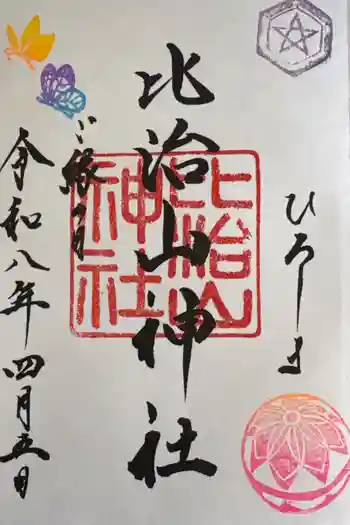 ひろしま
比治山神社
比治山
神社
ご縁月
令和八年四月五日